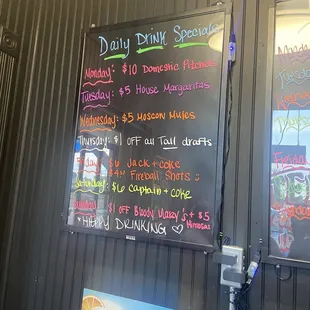 Daily Drink Specials
Monday: $10 Domestic Pitchers
Tuesday: $5 House Margaritas
Wednesday: $5 Moscow Mules
Thursday: $1 off all Tall drafts
Friday: $6 Jack + coke
$4 Fireball Shots
Saturday: $6 Captain + coke
Sunday: $1 off Bloody Mary's + $5
Mimosas
*HAPPY DRINKING
Monday
Tuesday
Wednesday
Friday